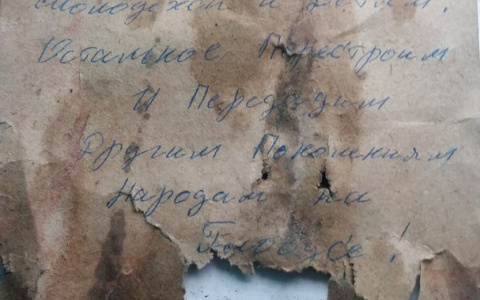 Молодежи и Детям.
Остальное Перестроим
И Передадим
Другим Поколениям
Народам на
Глобусе!